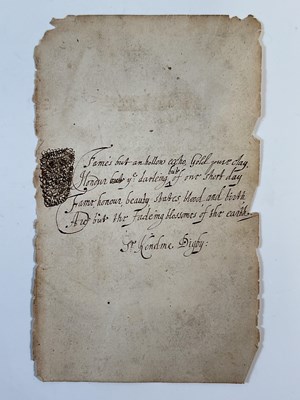 Fame's but an hollow echo, Gold pure clay
Honour but yᵉ darleng but of one short day
Fame honour, beauty states blood and birth
Are but the fadeing blossomes of the earth
Sʳ Kendme Digby: